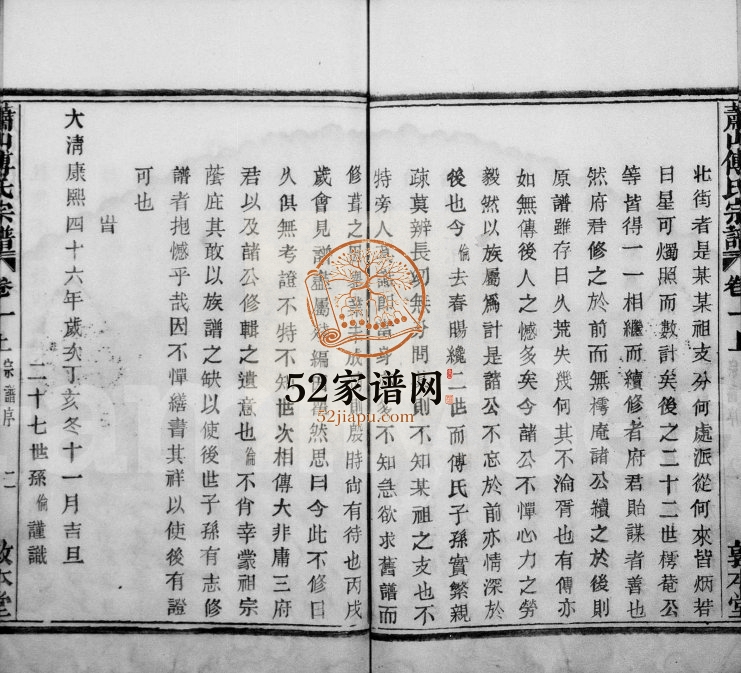 蕭山傅氏宗譜 卷一上 宗譜序 敦本堂
北街者是某某祖支分何處派從何來皆炳若
日星可燭照而數計矣後之二十二世樗菴公
等皆得一一相繼而續修者府君貽謀者善也
然府君修之於前而無樗庵諸公續之於後則
原譜雖存日久荒失幾何其不淪胥也有傳亦
如無傳後人之憾多矣今諸公不憚心力之勞
毅然以族屬為計是諸公不忘於前亦情深於
後也今倫去春暘纔二世而傅氏子孫實繁親
疎莫辨長幼無分問 則不知某祖之支也不
特旁人 不知急欲求舊譜而
修葺之 未成 時尚有待也丙戌
歲會見譜盡屬 編 然思曰今此不修日
久俱無考證不特不知世次相傳大非庸三府
君以及諸公修輯之遺意也倫不肖幸蒙祖宗
蔭庇其敢以族譜之缺以使後世子孫有志修
譜者抱憾乎哉因不憚繕書其祥以使後有證
可也
旹
大清康熙四十六年歲次丁亥冬十一月吉旦
二十七世孫倫謹識
蕭山傅氏宗譜 卷一上 宗譜序 二 敦本堂
52家谱网
52jiapu.com